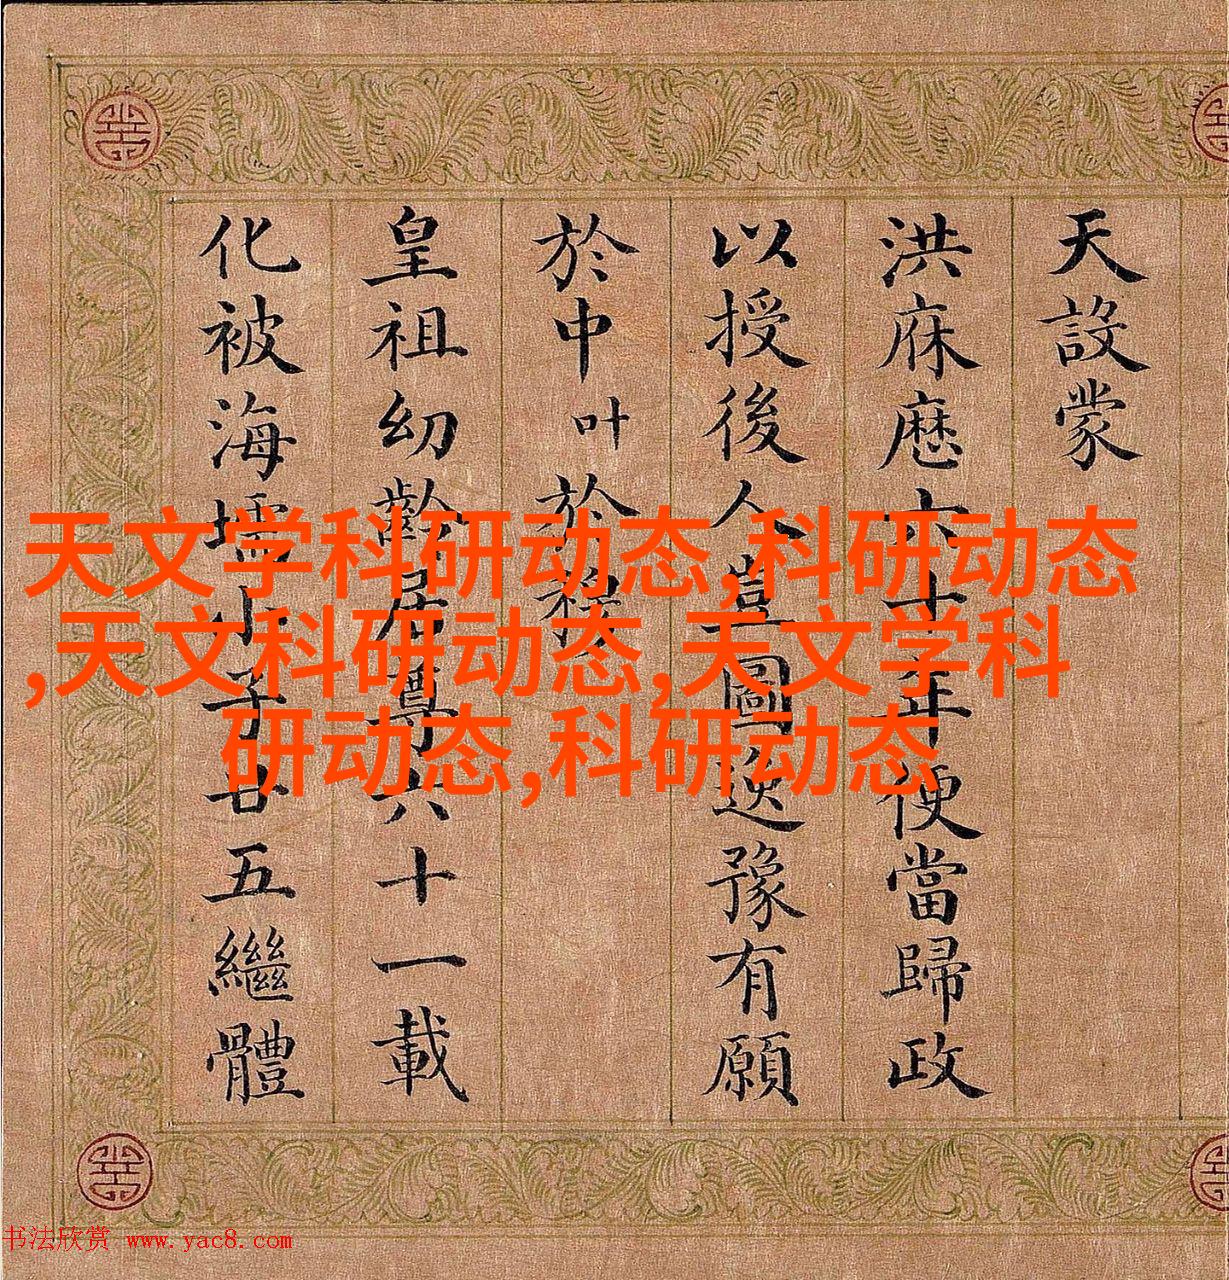 天設蒙
洪庥歷六十年便當歸政
以授後人豈圖逸豫有願
於中叶於
皇祖幼齡居尊六十一載
化被海壖小子廿五繼體
天文学科研动态,科研动态
,天文科研动态,天文学科
研动态,科研动态
书法欣赏 www.yac8.com